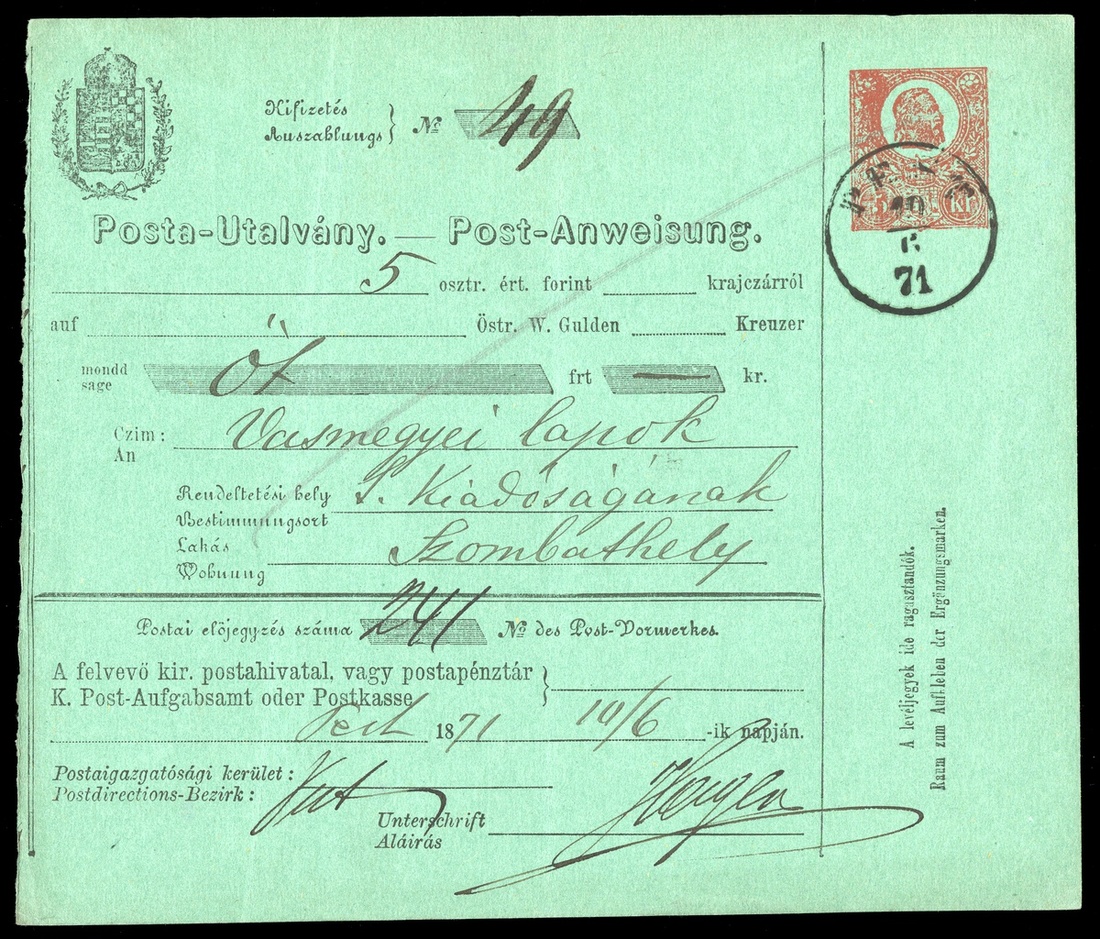 Kifizetés
Auszahlungs } No 49
Posta-Utalvány. — Post-Anweisung.
5 osztr. ért. forint krajczárról
auf Östr. W. Gulden Kreuzer
mondd
sage Öt frt — kr.
Czim: Vasmegyei lapok
An
Rendeltetési hely T. Kiadóságának
Bestimmungsort
Lakás Szombathely
Wohnung
Postai előjegyzés száma 241 No des Post-Vormerkes.
A felvevő kir. postahivatal, vagy postapénztár
K. Post-Aufgabsamt oder Postkasse
Pest 1871 10/6 -ik napján.
Postaigazgatósági kerület:
Postdirections-Bezirk:
Unterschrift
Aláirás
5 Kr
PEST
10
6
71
A levéljegyek ide ragasztandók.
Raum zum Aufkleben der Ergänzungsmarken.